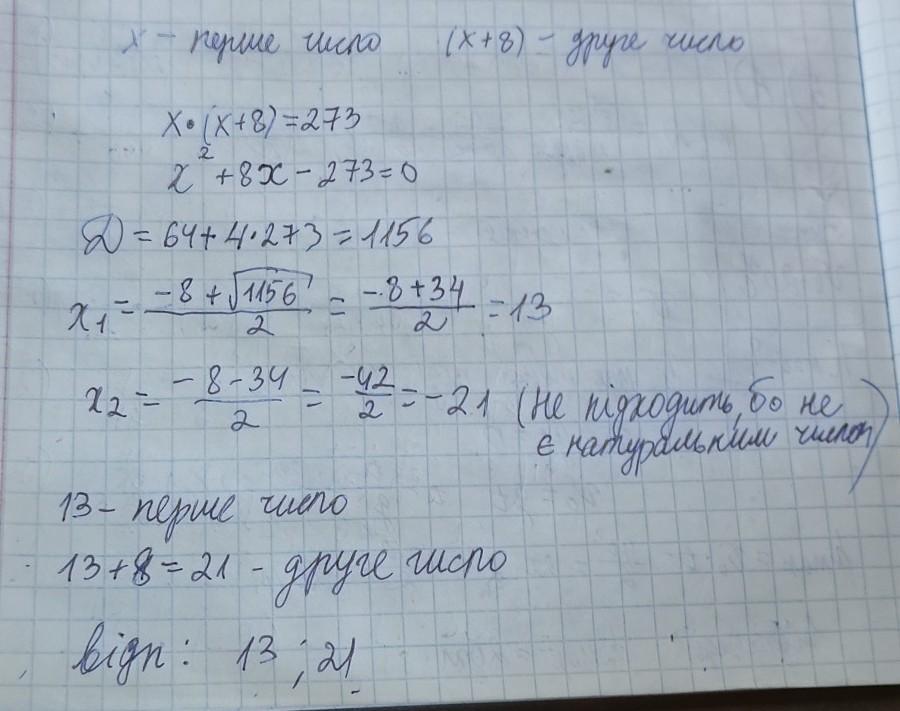 x – перше число (x+8) – друге число
x•(x+8)=273
x²+8x–273=0
D=64+4•273=1156
x₁=(-8+√1156)/2=(-8+34)/2=13
x₂=(-8-34)/2=-42/2=-21 (не підходить, бо не
є натуральним числом)
13– перше число
13+8=21 – друге число
Відп: 13;21